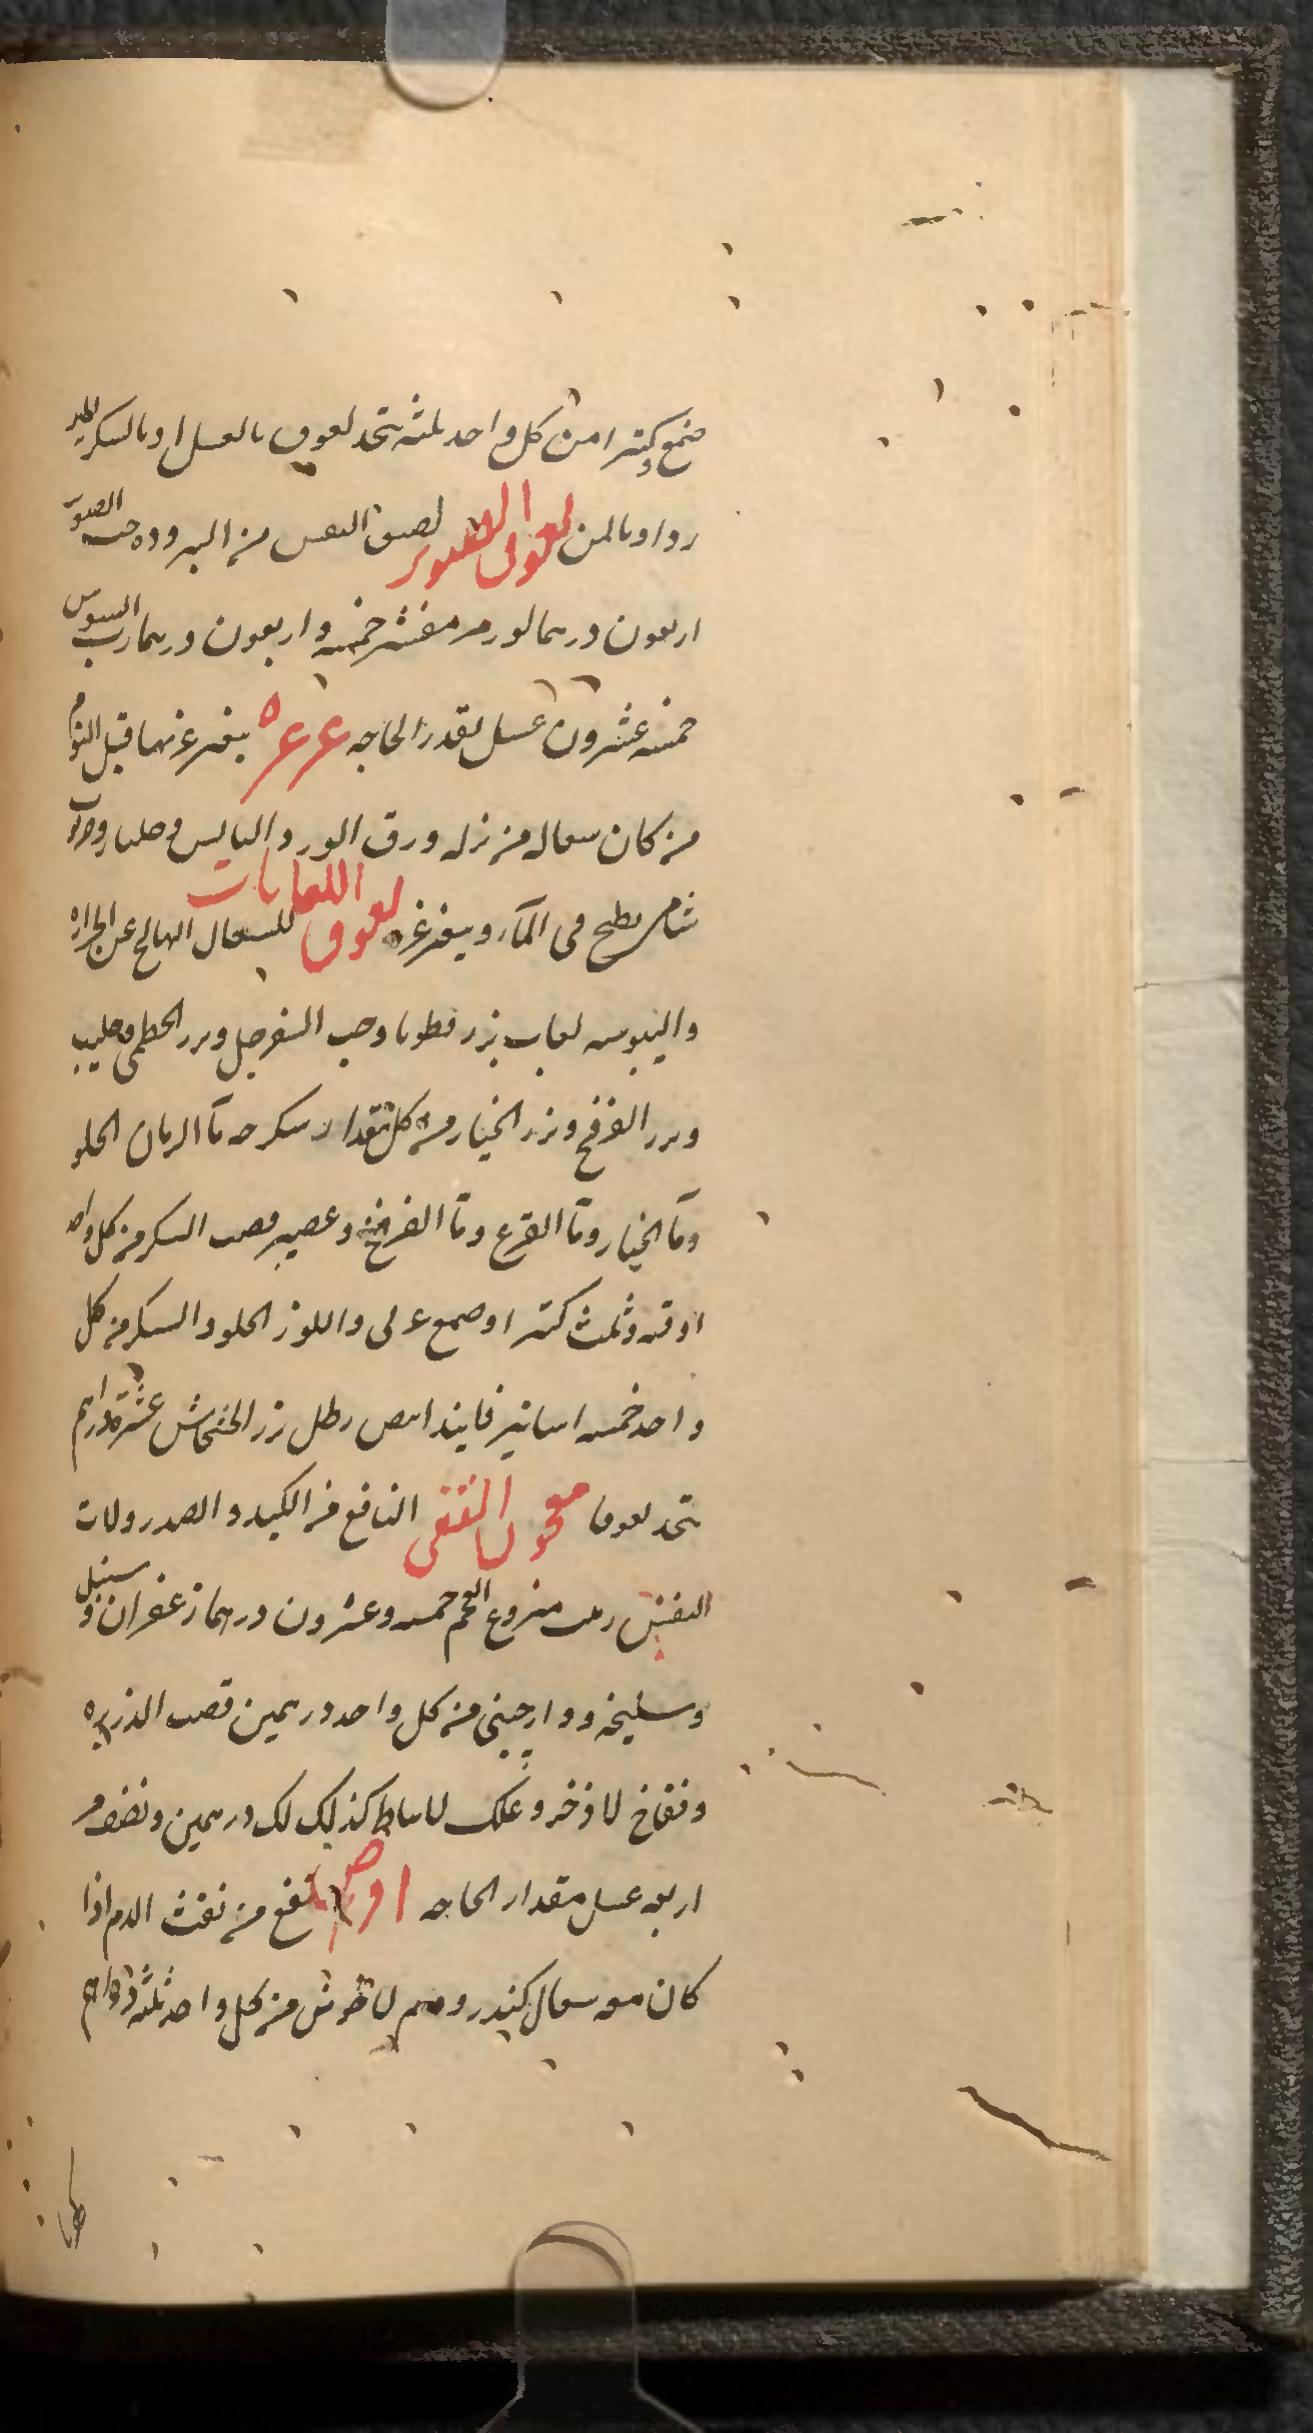 صمغ وكثيرا من كل واحد ثلثه يتخذ لعوق بالعسل او بالسكر
رد او بالمن لعوق الصنوبر لضيق النفس من البروده حب الصنوبر
اربعون درهما لوز مر مقشر خمسه واربعون درهما رب السوس
خمسه عشرون عسل بقدر الحاجه غرغره يتغرغر بها قبل النوم
من كان سعاله من نزله ورق الورد اليابس وجلنار
شامى يطبخ فى المآء ويتغرغر لعوق اللعابات للسعال الهائج عن الحراره
واليبوسه لعاب بزر قطونا وحب السفرجل وبزر الخطمى وحليب
وبزر الفرفخ وبزر الخيار من كل بقدر سكرجه مآ الرمان الحلو
ومآ الخيار ومآ القرع ومآ الفرفخ وعصير قصب السكر من كل واحد
اوقيه وثلث كثيرا وصمغ عربى واللوز الحلو والسكر من كل
واحد خمسه اساتير فانيذ ابيض رطل بزر الخشخاش عشرة دراهم
يتخذ لعوقا معجون القفى النافع من الكبد والصدر ولات
النفس زبيب منزوع العجم خمسه وعشرون درهما زعفران وسنبل
وسليخه ودارچينى من كل واحد درهمين قصب الذريره
وفقاح لاذخر وعلك لانباط كذلك لك درهمين ونصف مر
اربعه عسل مقدار الحاجه اقراص ينفع من نفث الدم اذا
كان معه سعال كندر ودم لاخوين من كل واحد ثلثه دراهم
طبا